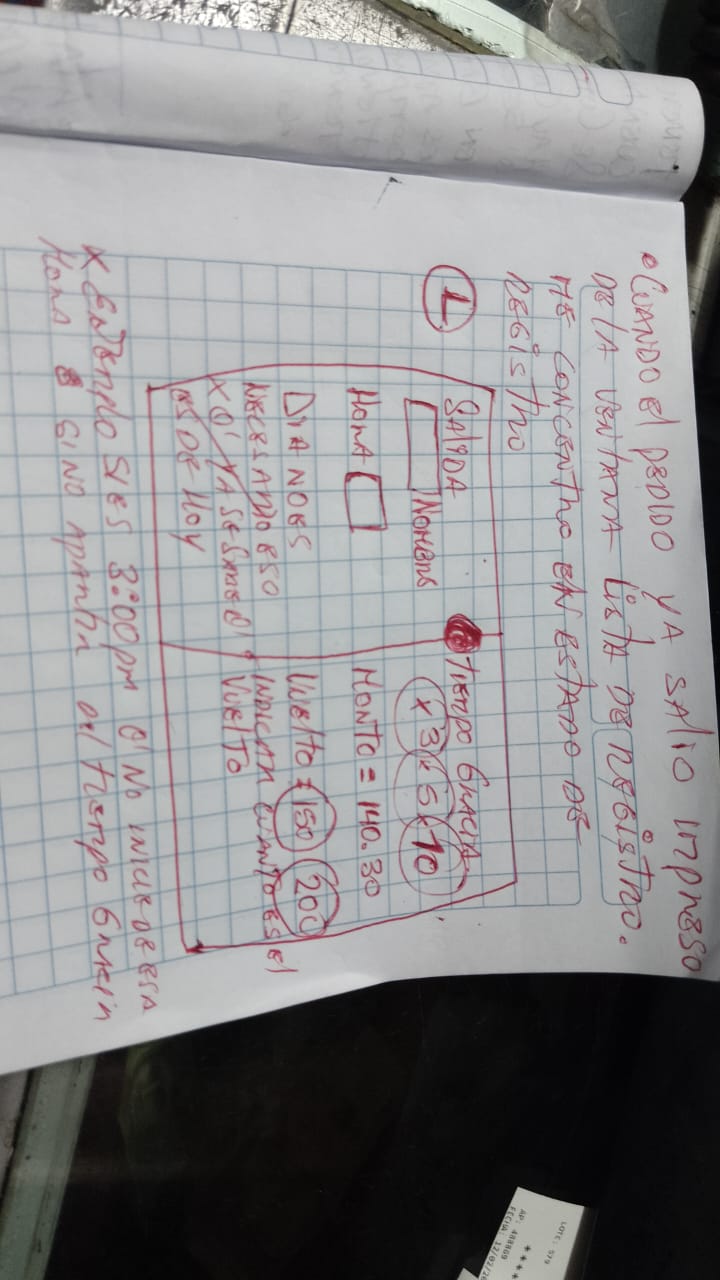 • CUANDO el PEDIDO YA SALIO IMPRESO
DE LA VENTANA LISTA DE REGISTRO.
ME CONCENTRO EN ESTADO DE
REGISTRO
1
SALIDA
NOMBRE
HORA
DIA NO ES
NECESARIO ESO
X Q' YA SE SABE Q'
ES DE HOY
TIEMPO GRACIA
x 3 x 5 x 10
MONTO = 140.30
VUELTO = 150 200
INDICAR CUANTO ES El
VUELTO
x EJEMPLO SI ES 3:00 pm Q' NO INICIE DE ESA
HORA SINO APARTIR DEL TIEMPO GRACIA
LOTE: 579
****
AP: 488869
FECHA: 12/02/20